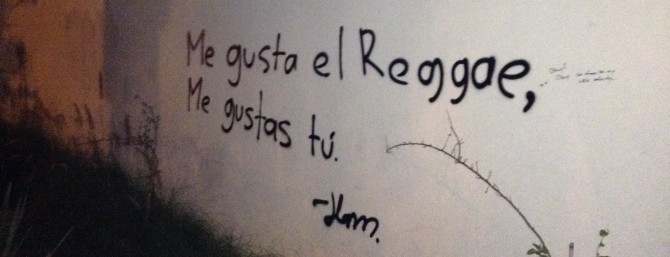 Me gusta el Reggae,
Me gustas tú.